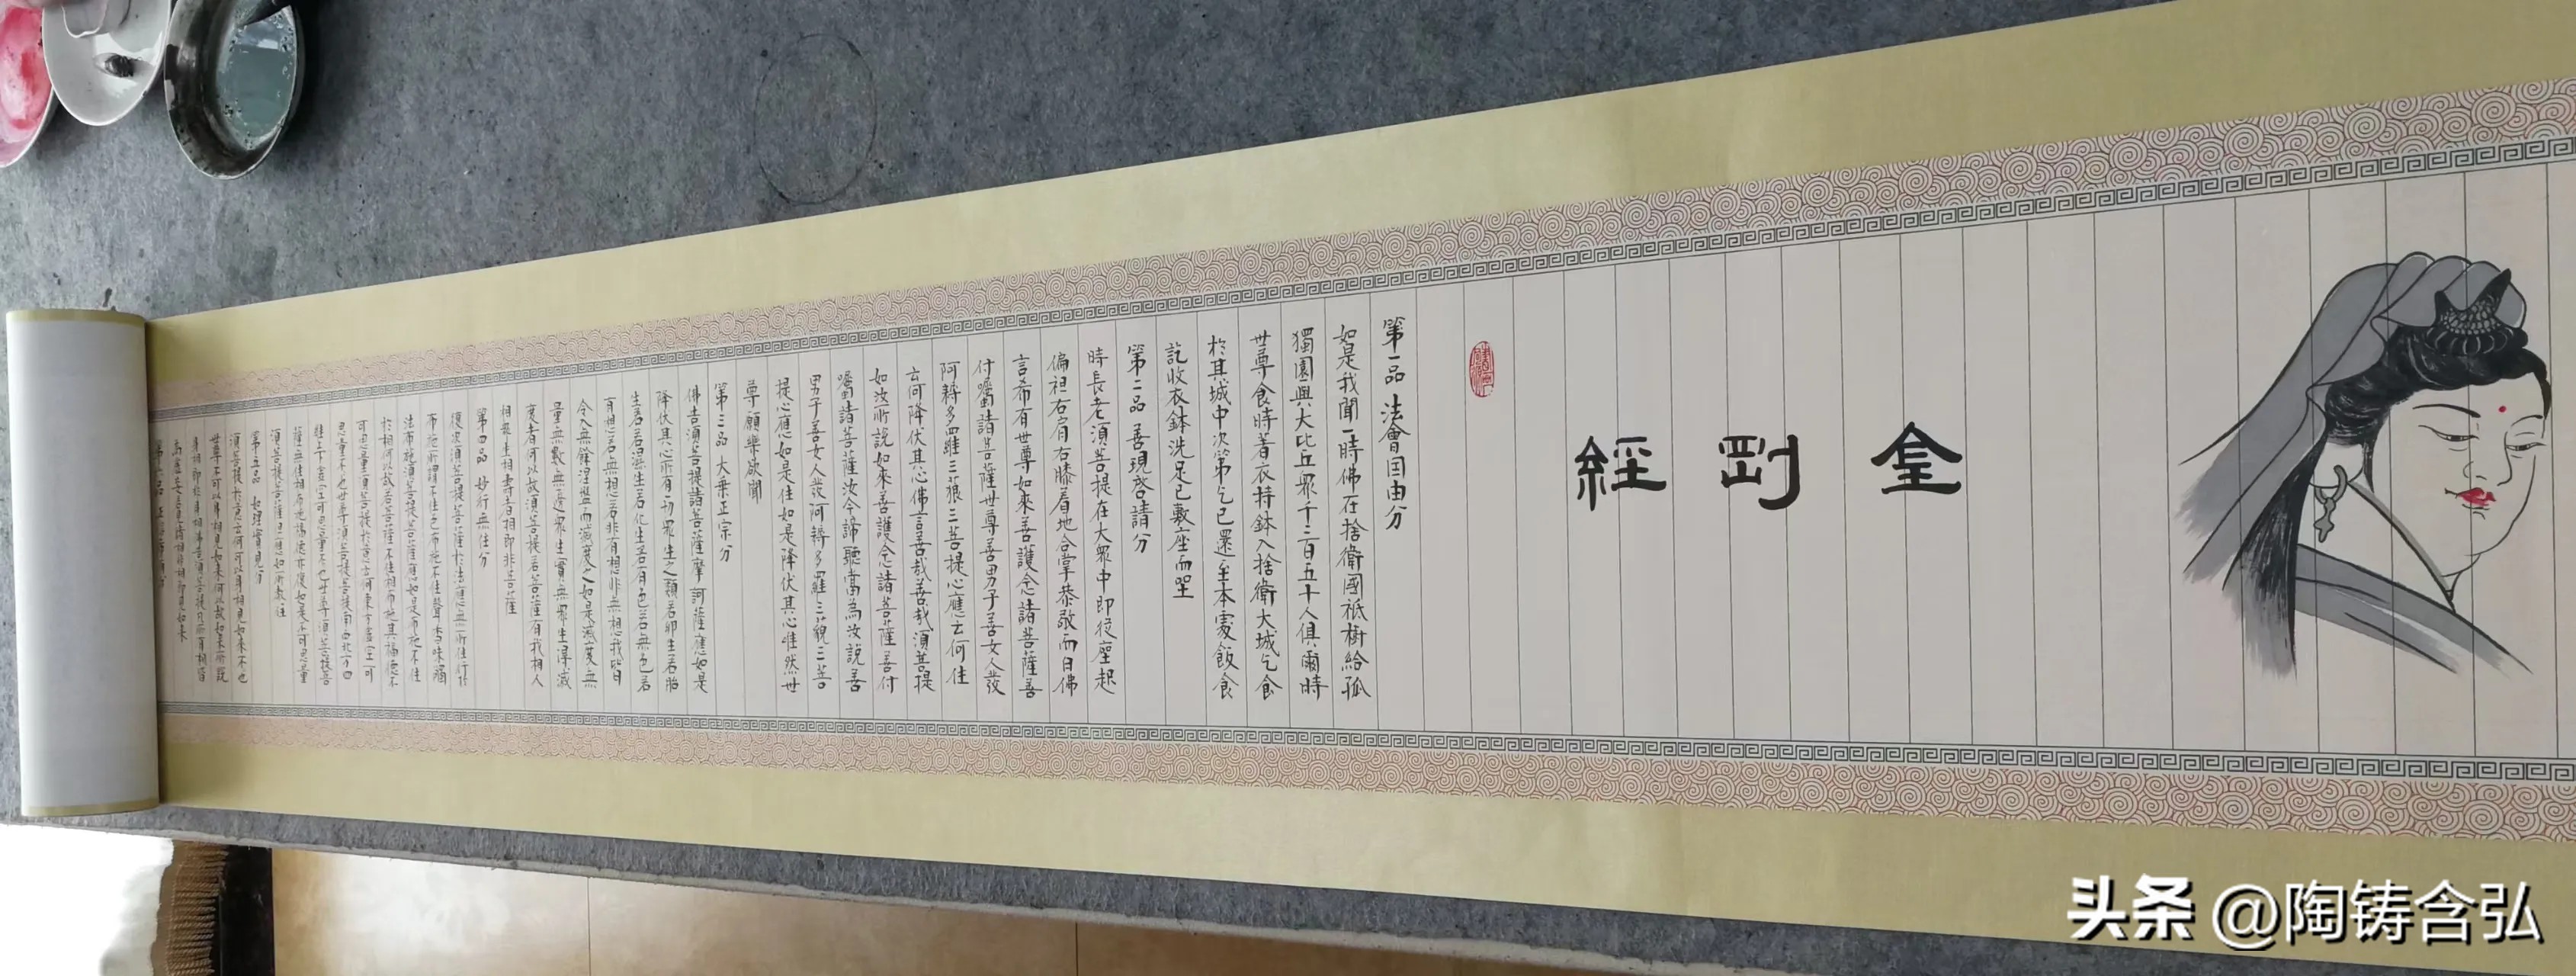 金剛經
第一品 法會因由分
如是我聞一時佛在捨衛國祇樹給孤
獨園與大比丘眾千二百五十人俱爾時
世尊食時著衣持鉢入捨衛大城乞食
於其城中次第乞已還至本處飯食
訖收衣鉢洗足已敷座而坐
第二品 善現啓請分
時長老須菩提在大眾中即從座起
偏袒右肩右膝着地合掌恭敬而曰佛
言希有世尊如來善護念諸菩薩善
付囑諸菩薩世尊善男子善女人發
阿耨多羅三藐三菩提心應云何住
云何降伏其心佛言善哉善哉須菩提
如汝所說如來善護念諸菩薩善付
囑諸菩薩汝今諦聽當為汝說善
男子善女人發阿耨多羅三藐三菩
提心應如是住如是降伏其心唯然世
尊願樂欲聞
第三品 大乘正宗分
佛告須菩提諸菩薩摩訶薩應如是
降伏其心所有一切眾生之類若卵生若胎
生若濕生若化生若有色若無色若
有想若無想若非有想非無想我皆
令入無餘涅槃而滅度之如是滅度無
量無數無邊眾生實無眾生得滅
度者何以故須菩提若菩薩有我相人
相眾生相壽者相即非菩薩
第四品 妙行無住分
復次須菩提菩薩於法應無所住行於
布施所謂不住色布施不住聲香味觸
法布施須菩提菩薩應如是布施不住
於相何以故若菩薩不住相布施其福德不
可思量須菩提於意云何東方虛空可
思量不也世尊須菩提南西北方四
維上下虛空可思量不也世尊須菩提菩
薩無住相布施福德亦復如是不可思量
須菩提菩薩但應如所教住
第五品 如理實見分
須菩提於意云何可以身相見如來不也
世尊不可以身相見如來何以故如來所說
身相即非身相佛告須菩提凡所有相皆
為虛妄若見諸相非相即見如來
第六品
头条 @陶铸含弘